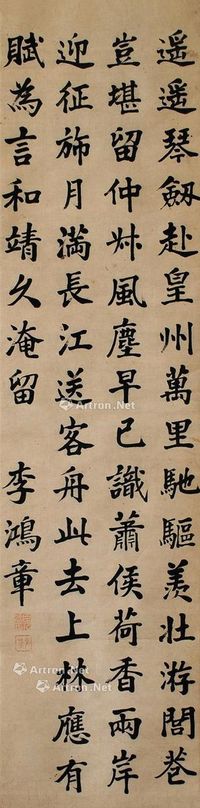 遥遥琴劔赴皇州萬里馳驅羨壮游閭巷
豈堪留仲叔風塵早已識蕭侯荷香兩岸
迎征斾月滿長江送客舟此去上林應有
賦為言和靖久淹留 李鴻章
Artron.Net
Artron.Net
Artron.Net
Artron.Net